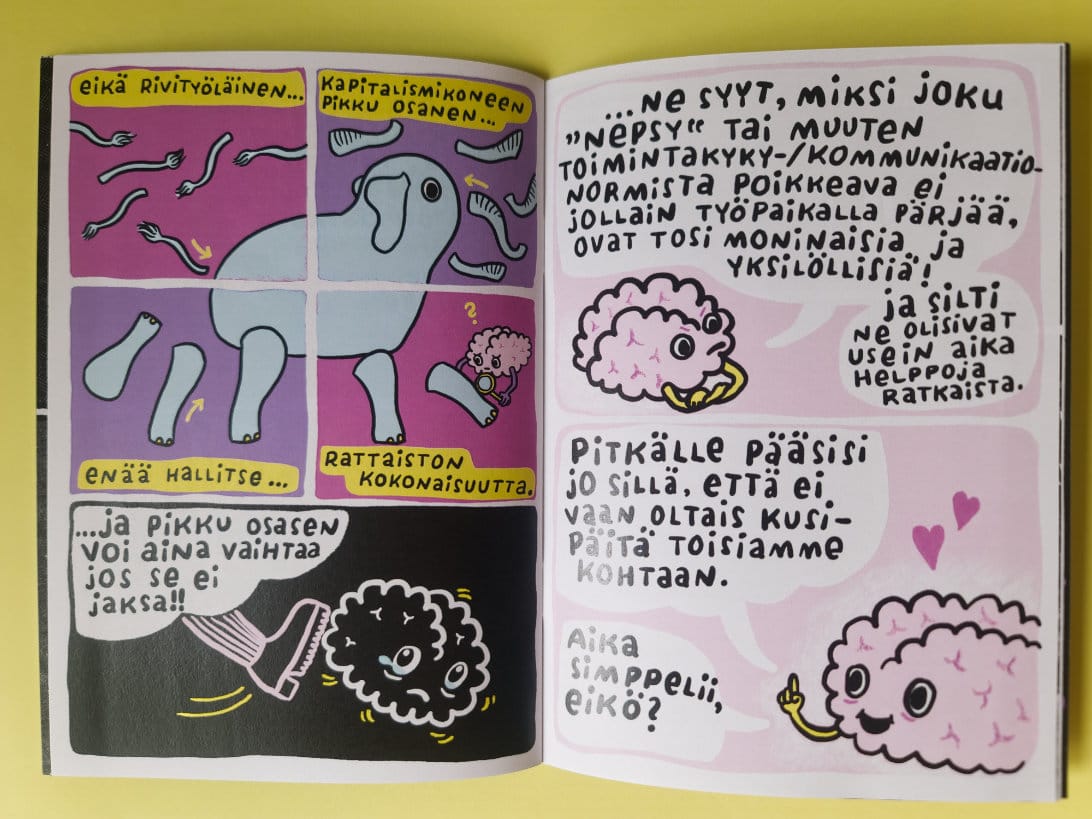 eikä RiVityöläinen...
KAPITALISMIKONEEN
PIKKU OSANEN...
enää HALLITSE...
RATTAISTON
KOKONAISUUTTA.
...ja PIKKU OSASEN
VOI AINA VAIHTAA
jos se ei
jaksa!!
...NE SYYT, MIKSI JOKU
”NEPSY“ TAI MUUTEN
TOIMINTAKYKY-/KOMMUNIKAATIO-
NORMISTA POIKKEAVA ei
JOLLAIN TYÖPAIKALLA PÄRJÄÄ,
OVAT TOSI MONINAISIA ja
YKSILÖLLISIÄ!
ja SILTI
NE OLISIVAT
USEIN AIKA
HELPPOJA
RATKAISTA.
PITKÄLLE PÄÄSISI
JO SILLÄ, ETTÄ ei
VAAN OLTAIS KUSI-
PÄITÄ TOISIAMME
KOHTAAN.
AIKA
SIMPPELII,
eiKÖ?
?